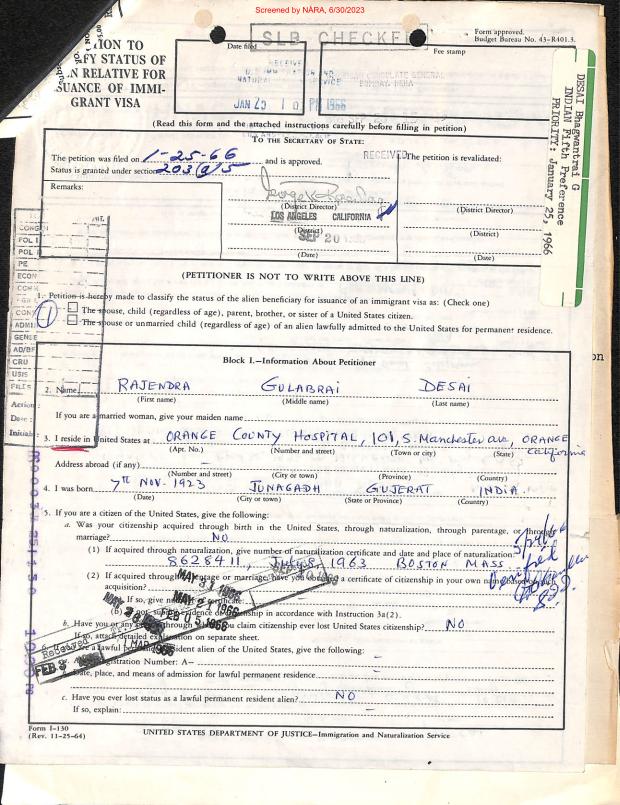 Screened by NARA, 6/30/2023
SLB CHECKED
Form approved.
Budget Bureau No. 43-R401.3.
ION TO
FY STATUS OF
N RELATIVE FOR
SUANCE OF IMMI-
GRANT VISA
Date filed
Fee stamp
JAN 25 1966
DESAI Bhagwantrai G
INDIAN Fifth Preference
PRIORITY: January 25, 1966
(Read this form and the attached instructions carefully before filling in petition)
TO THE SECRETARY OF STATE:
The petition was filed on 1-25-66 and is approved.
Status is granted under section 203(a)5
RECEIVED
The petition is revalidated:
Remarks:
(District Director)
LOS ANGELES CALIFORNIA
(District)
SEP 20
(Date)
(District Director)
(District)
(Date)
(PETITIONER IS NOT TO WRITE ABOVE THIS LINE)
1. Petition is hereby made to classify the status of the alien beneficiary for issuance of an immigrant visa as: (Check one)
The spouse, child (regardless of age), parent, brother, or sister of a United States citizen.
The spouse or unmarried child (regardless of age) of an alien lawfully admitted to the United States for permanent residence.
Block I.—Information About Petitioner
2. Name RAJENDRA GULABRAI DESAI
(First name) (Middle name) (Last name)
If you are a married woman, give your maiden name
3. I reside in United States at ORANGE COUNTY HOSPITAL, 101, S. Manchester ave, ORANGE California
(Apt. No.) (Number and street) (Town or city) (State)
Address abroad (if any) –
(Number and street) (City or town) (Province) (Country)
4. I was born 7th NOV. 1923 JUNAGADH GUJERAT INDIA
(Date) (City or town) (State or Province) (Country)
5. If you are a citizen of the United States, give the following:
a. Was your citizenship acquired through birth in the United States, through naturalization, through parentage, or through
marriage? NO
(1) If acquired through naturalization, give number of naturalization certificate and date and place of naturalization
8628411, July 8, 1963 BOSTON MASS
(2) If acquired through parentage or marriage, have you obtained a certificate of citizenship in your own name
acquisition?
If so, give number of certificate
(b) If not, submit evidence of citizenship in accordance with Instruction 3a(2).
b. Have you or any claim citizenship ever lost United States citizenship? NO
If so, attach detailed explanation on separate sheet.
6. If you are a lawful permanent resident alien of the United States, give the following:
a. Alien Registration Number: A– –
b. Date, place, and means of admission for lawful permanent residence –
c. Have you ever lost status as a lawful permanent resident alien? NO
If so, explain: –
Form I-130
(Rev. 11-25-64)
UNITED STATES DEPARTMENT OF JUSTICE—Immigration and Naturalization Service